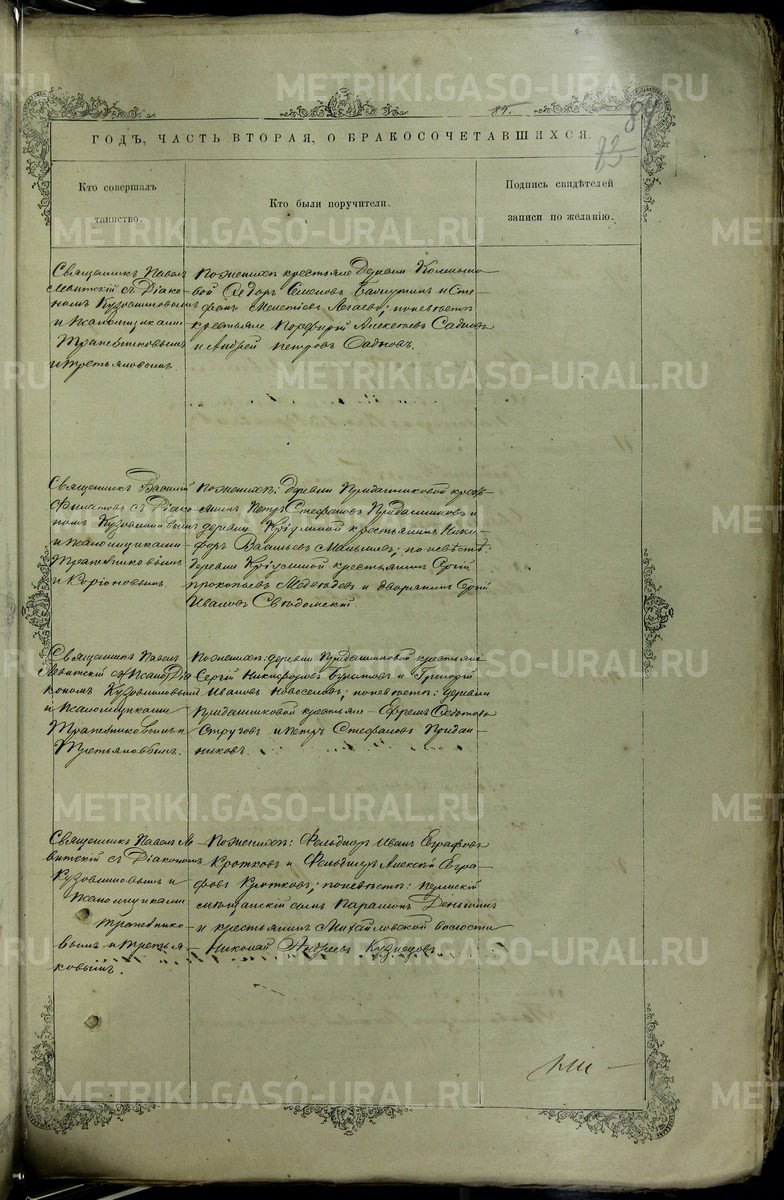 84
83
ГОДЪ, ЧАСТЬ ВТОРАЯ, О БРАКОСОЧЕТАВШИХСЯ.
Кто совершалъ
таинство.
Кто были поручители.
Подпись свидѣтелей
записи по желанію.
Священникъ Павелъ
Левитскій съ Діако-
номъ Кузовниковымъ
и псаломщиками
Трапезниковымъ
и Третьяковымъ.
По женихѣ крестьяне деревни
вой Ѳедоръ Семеновъ и Сте-
фанъ; по невѣстѣ
крестьяне Порфирій Алексѣевъ
и Андрей Петровъ
Священникъ Василій
съ Діако-
номъ Кузовниковымъ
и псаломщиками
Трапезниковымъ
и
По женихѣ: деревни Приданниковой кресть-
янинъ Петръ Стефановъ Приданниковъ и
деревни крестьянинъ Ники-
форъ Васильевъ; по невѣстѣ:
деревни крестьянинъ Сергій
Прокопьевъ Медвѣдевъ и дворянинъ Сергій
Ивановъ Свѣдомскій.
Священникъ Павелъ
Левитскій съ Діа-
кономъ Кузовниковымъ
и псаломщиками
Трапезниковымъ и
Третьяковымъ.
По женихѣ: деревни Приданниковой крестьяне
Сергій Никифоровъ и Григорій
Ивановъ Новоселовъ; по невѣстѣ: деревни
Приданниковой крестьяне Ефремъ Ѳедотовъ
и Петръ Стефановъ Придан-
никовъ.
Священникъ Павелъ Ле-
витскій съ Діакономъ
Кузовниковымъ и
псаломщиками
Трапезнико-
вымъ и Третья-
ковымъ.
По женихѣ: Фельдшеръ Иванъ Евграфовъ
Кротковъ и Фельдшеръ Алексѣй Евгра-
фовъ Кротковъ; по невѣстѣ: пермскій
мѣщанскій сынъ Парамонъ
и крестьянинъ Михайловской волости
Николай Андреевъ Кузнецовъ.
METRIKI.GASO-URAL.RU